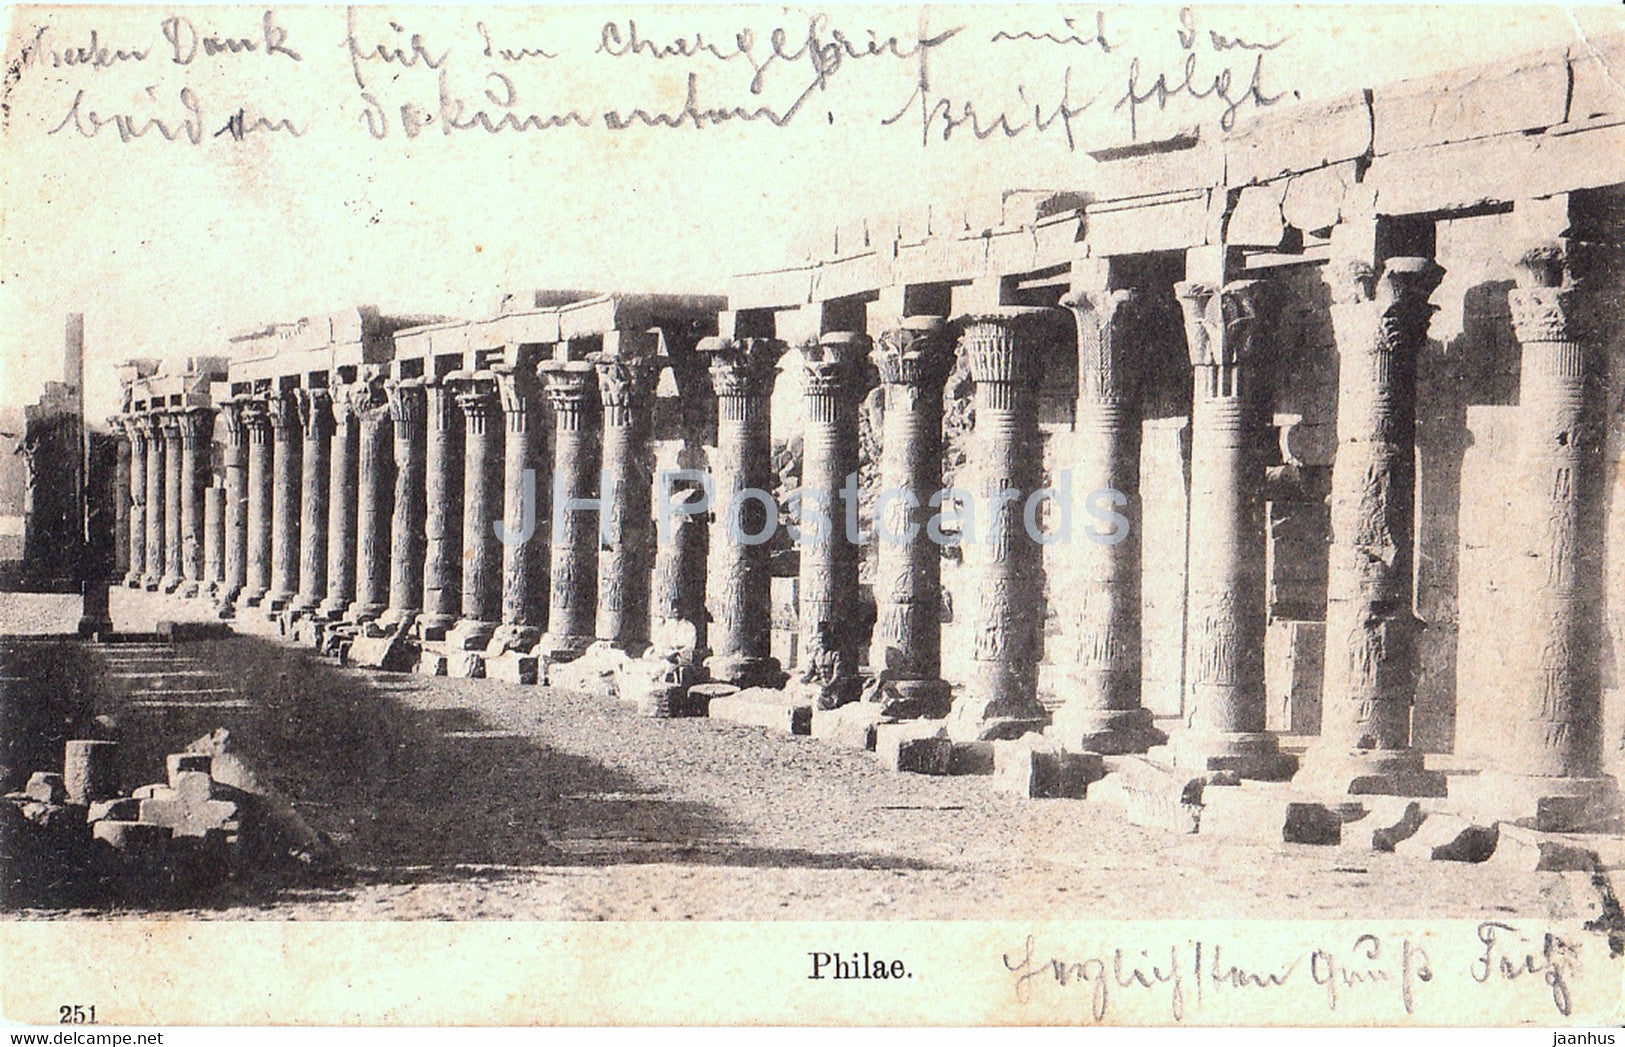 Besten Dank für den Chargebrief mit den
beiden Dokumenten. Brief folgt.
JH Postcards
Philae.
Herzlichsten Gruß Fritz
251
jaanhus